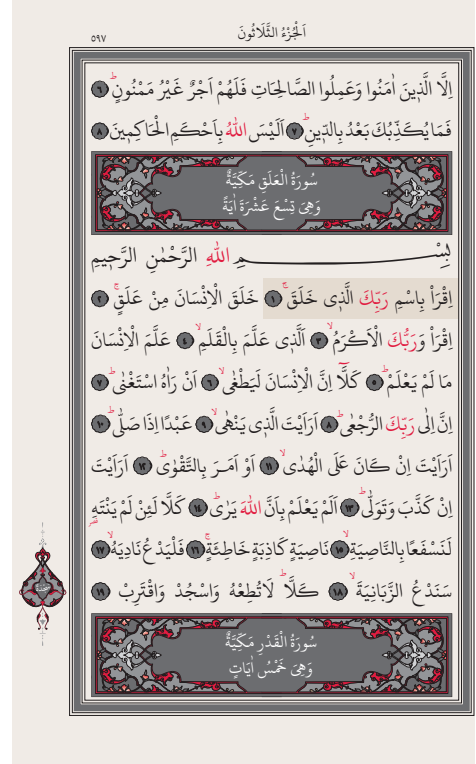 اَلْجُزْءُ الثَّلَاثُونَ
٥٩٧
اِلَّا الَّذٖينَ اٰمَنُوا وَعَمِلُوا الصَّالِحَاتِ فَلَهُمْ اَجْرٌ غَيْرُ مَمْنُونٍؕ ٦
فَمَا يُكَذِّبُكَ بَعْدُ بِالدّٖينِؕ ٧ اَلَيْسَ اللّٰهُ بِاَحْكَمِ الْحَاكِمٖينَ ٨
سُورَةُ الْعَلَقِ مَكِّيَّةٌ
وَهِيَ تِسْعَ عَشْرَةَ اٰيَةً
بِسْمِ اللّٰهِ الرَّحْمٰنِ الرَّحٖيمِ
اِقْرَاْ بِاسْمِ رَبِّكَ الَّذٖى خَلَقَۚ ١ خَلَقَ الْاِنْسَانَ مِنْ عَلَقٍۚ ٢
اِقْرَاْ وَرَبُّكَ الْاَكْرَمُۙ ٣ اَلَّذٖى عَلَّمَ بِالْقَلَمِۙ ٤ عَلَّمَ الْاِنْسَانَ
مَا لَمْ يَعْلَمْؕ ٥ كَلَّٓا اِنَّ الْاِنْسَانَ لَيَطْغٰىۙ ٦ اَنْ رَاٰهُ اسْتَغْنٰىؕ ٧
اِنَّ اِلٰى رَبِّكَ الرُّجْعٰىؕ ٨ اَرَاَيْتَ الَّذٖى يَنْهٰىۙ ٩ عَبْدًا اِذَا صَلّٰىؕ ١٠
اَرَاَيْتَ اِنْ كَانَ عَلَى الْهُدٰىۙ ١١ اَوْ اَمَرَ بِالتَّقْوٰىؕ ١٢ اَرَاَيْتَ
اِنْ كَذَّبَ وَتَوَلّٰىؕ ١٣ اَلَمْ يَعْلَمْ بِاَنَّ اللّٰهَ يَرٰىؕ ١٤ كَلَّا لَئِنْ لَمْ يَنْتَهِ
لَنَسْفَعًا بِالنَّاصِيَةِۙ ١٥ نَاصِيَةٍ كَاذِبَةٍ خَاطِئَةٍۚ ١٦ فَلْيَدْعُ نَادِيَهُۙ ١٧
سَنَدْعُ الزَّبَانِيَةَۙ ١٨ كَلَّاؕ لَا تُطِعْهُ وَاسْجُدْ وَاقْتَرِبْ ١٩
سُورَةُ الْقَدْرِ مَكِّيَّةٌ
وَهِيَ خَمْسُ اٰيَاتٍ